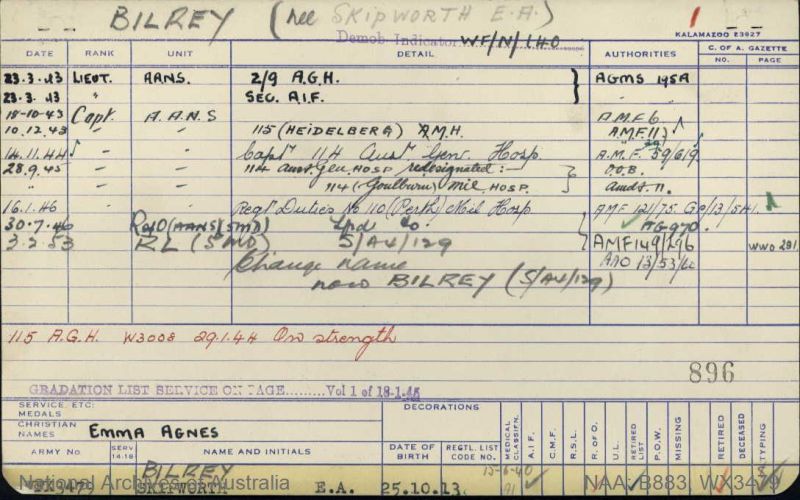 BILREY (nee SKIPWORTH E.A.)
Demob Indicator WF/N/140
KALAMAZOO 23927
DATE RANK UNIT DETAIL AUTHORITIES C. OF A. GAZETTE
NO. PAGE
23.3.43 LIEUT. AANS. 2/9 A.G.H. AGMS 145A
23.3.43 " SEC. A.I.F.
18-10-43 Capt. A.A.N.S A.M.F 6
10.12.43 " " 115 (HEIDELBERG) A.M.H. AMF 113
14.11.44 " " Capt 114 Aust Gen. Hosp. A.M.F. 59/619
28.9.45 " " 114 Aust. Gen. HOSP redesignated:— O.O.B.
" " " 114 (Goulburn) Mil. HOSP. Amdt. 11.
16.1.46 Regtl Duties No 110 (Perth) Mil Hosp AMF 121/75. GP/13/541.
30.7.46 RofO (AANS)(5MD) AG970
3.2.53 RL (5 MD) S/A4/129 AMF149/296 WWO 291
Change name AAO 13/53/60
now BILREY (S/A4/129)
115 A.G.H. W3008 29.1.44 On strength
896
GRADATION LIST SERVICE ON PAGE Vol 1 of 18-1-45
SERVICE, ETC: MEDALS DECORATIONS
CHRISTIAN NAMES EMMA AGNES
ARMY No. SERV 14-18 NAME AND INITIALS DATE OF BIRTH REGTL. LIST CODE NO. MEDICAL CLASSIFN. A.I.F. C.M.F. R.S.L. R. of O. U.L. RETIRED LIST P.O.W. MISSING RETIRED DECEASED TYPING
BILREY 15-6-40
WX3479 SKIPWORTH E.A. 25.10.13.
National Archives of Australia NAA: B883, WX3479